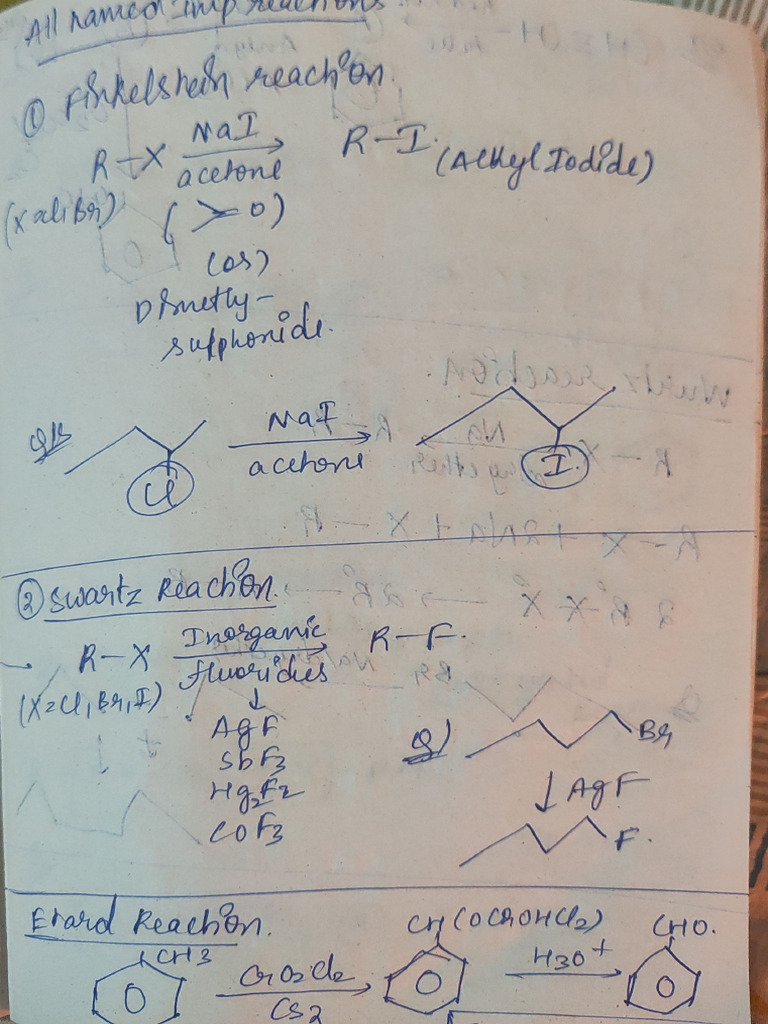 All named imp reactions
① Finkelstein reaction.
R-X NaI acetone R-I. (Alkyl Iodide)
(X=Cl,Br) (>=O)
(or)
Dimethy-
sulphoxide.
NaI
Cl acetone I
② Swartz Reaction.
R-X Inorganic fluorides R-F.
(X=Cl,Br,I)
AgF
SbF3
Hg2F2
COF3
Q) Br
AgF
F.
Etard Reaction.
CH3 CrO2Cl2 CS2 CH(OCrOHCl2) H3O+ CHO.